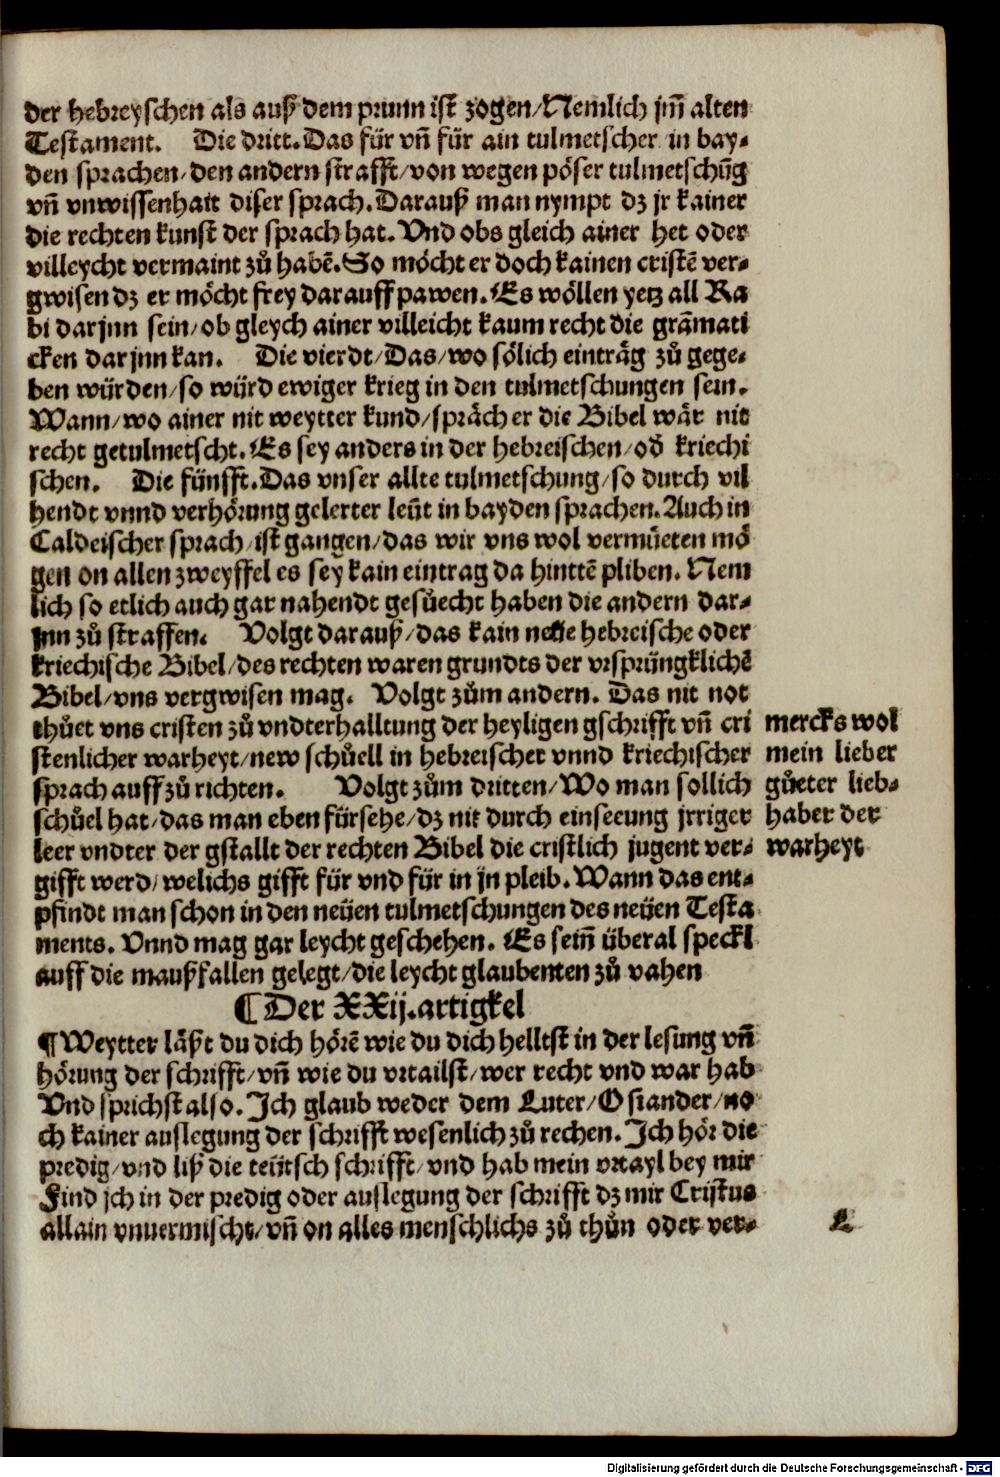 der hebreyschen als auß dem prunn ist zogen/Nemlich jm̃ alten
Testament. Die dritt. Das für vñ für ain tulmetscher in bay⸗
den sprachen/den andern strafft/von wegen pöser tulmetschũg
vñ vnwissenhait diser sprach. Darauß man nympt dz jr kainer
die rechten kunst der sprach hat. Vnd obs gleich ainer het oder
villeycht vermaint zů habẽ. So möcht er doch kainen cristẽ ver⸗
gwisen dz er möcht frey darauff pawen. Es wöllen yetz all Ra
bi darjnn sein/ob gleych ainer villeicht kaum recht die grãmati
cken darjnn kan. Die vierdt/Das/wo sölich einträg zů gege⸗
ben würden/so würd ewiger krieg in den tulmetschungen sein.
Wann/wo ainer nit weytter kund/spräch er die Bibel wär nit
recht getulmetscht. Es sey anders in der hebreischen/oď kriechi
schen. Die fünfft. Das vnser allte tulmetschung/so durch vil
hendt vnnd verhörung gelerter leüt in bayden sprachen. Auch in
Caldeischer sprach/ist gangen/das wir vns wol vermůeten mö
gen on allen zweyffel es sey kain eintrag da hinttẽ pliben. Nem
lich so etlich auch gar nahendt gesůecht haben die andern dar⸗
jnn zů straffen. Volgt darauß/das kain neüe hebreische oder
kriechische Bibel/des rechten waren grundts der vrsprüngklichẽ
Bibel/vns vergwisen mag. Volgt zům andern. Das nit not
thůet vns cristen zů vndterhalltung der heyligen gschrifft vñ cri
stenlicher warheyt/new schůell in hebreischer vnnd kriechischer
sprach auff zů richten. Volgt zům dritten/Wo man sollich
schůel hat/das man eben fürsehe/dz nit durch einseeung jrriger
leer vndter der gstallt der rechten Bibel die cristlich jugent ver⸗
gifft werd/welichs gifft für vnd für in jn pleib. Wann das ent⸗
pfindt man schon in den neüen tulmetschungen des neüen Testa
ments. Vnnd mag gar leycht geschehen. Es sein̄ überal speckl
auff die maußfallen gelegt/die leycht glaubenten zů vahen
mercks wol
mein lieber
gůeter lieb⸗
haber der
warheyt
¶ Der XXij. artigkel
¶ Weytter läßt du dich hörẽ wie du dich helltst in der lesung vñ
hörung der schrifft/vñ wie du vrtailst/wer recht vnd war hab
Vnd sprichst also. Ich glaub weder dem Luter/Osiander/no
ch kainer auslegung der schrifft wesenlich zů rechen. Ich hör die
predig/vnd liß die teütsch schrifft/vnd hab mein vrtayl bey mir
Find jch in der predig oder auslegung der schrifft dz mir Cristus
allain vnuermischt/vñ on alles menschlichs zů thůn oder ver⸗
L
Digitalisierung gefördert durch die Deutsche Forschungsgemeinschaft - DFG